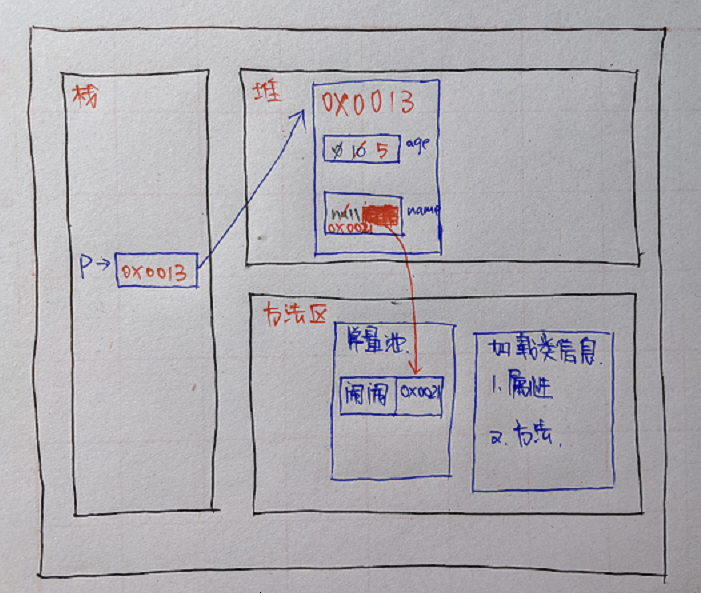 栈
P→
0X0013
堆
0X0013
0 10 5 age
null name
0X0021
方法区
常量池
闹闹 0X0021
加载类信息
1. 属性
2. 方法.